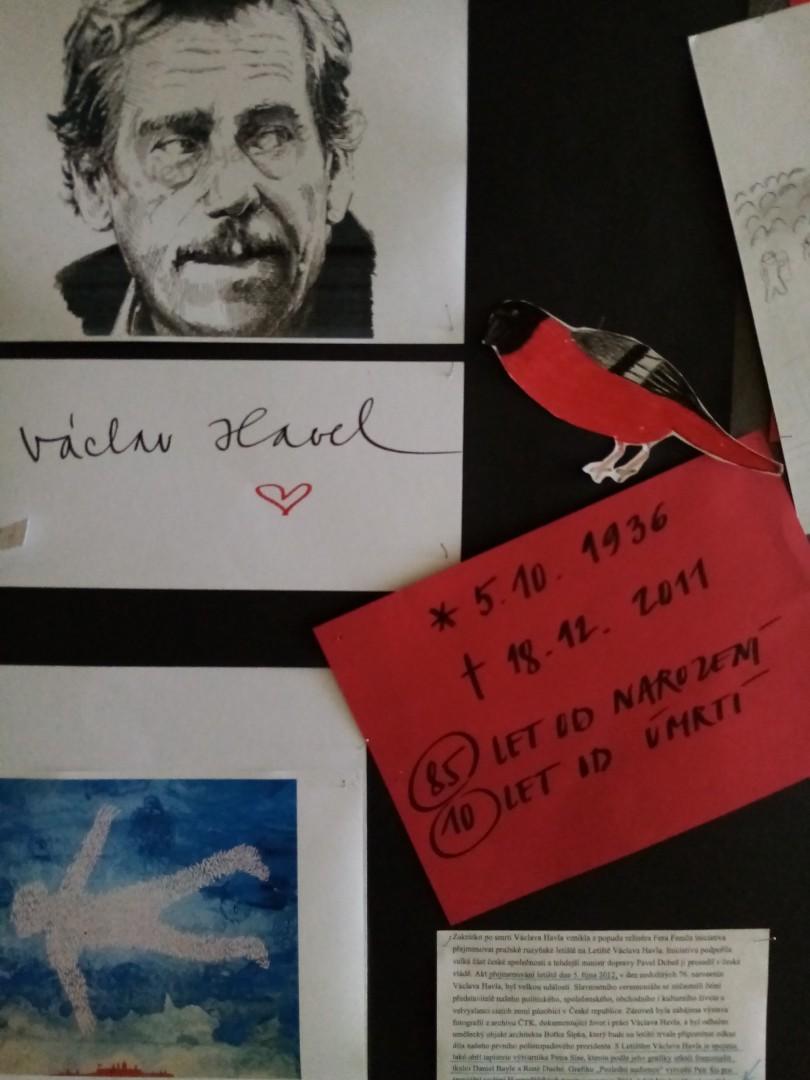 Václav Havel
* 5.10. 1936
† 18.12. 2011
85 LET OD NAROZENÍ
10 LET OD ÚMRTÍ
Zakrátko po smrti Václava Havla vznikla z popudu režiséra Fera Feniča iniciativa
přejmenovat pražské ruzyňské letiště na Letiště Václava Havla. Iniciativu podpořila
velká část české společnosti a tehdejší ministr dopravy Pavel Dobeš ji prosadil v české
vládě. Akt přejmenování letiště dne 5. října 2012, v den nedožitých 76. narozenin
Václava Havla, byl velkou událostí. Slavnostního ceremoniálu se zúčastnili čelní
představitelé našeho politického, společenského, obchodního i kulturního života a
velvyslanci cizích zemí působící v České republice. Zároveň byla zahájena výstava
fotografií z archivu ČTK, dokumentující život i práci Václava Havla, a byl odhalen
umělecký objekt architekta Bořka Šípka, který bude na letišti trvale připomínat odkaz
díla našeho prvního polistopadového prezidenta. S Letištěm Václava Havla je spojena
také obří tapiserie výtvarníka Petra Síse, kterou podle jeho grafiky utkali francouzští
tkalci Daniel Bayle a René Duché. Grafiku „Poslední audience" vytvořil Petr Sís pro